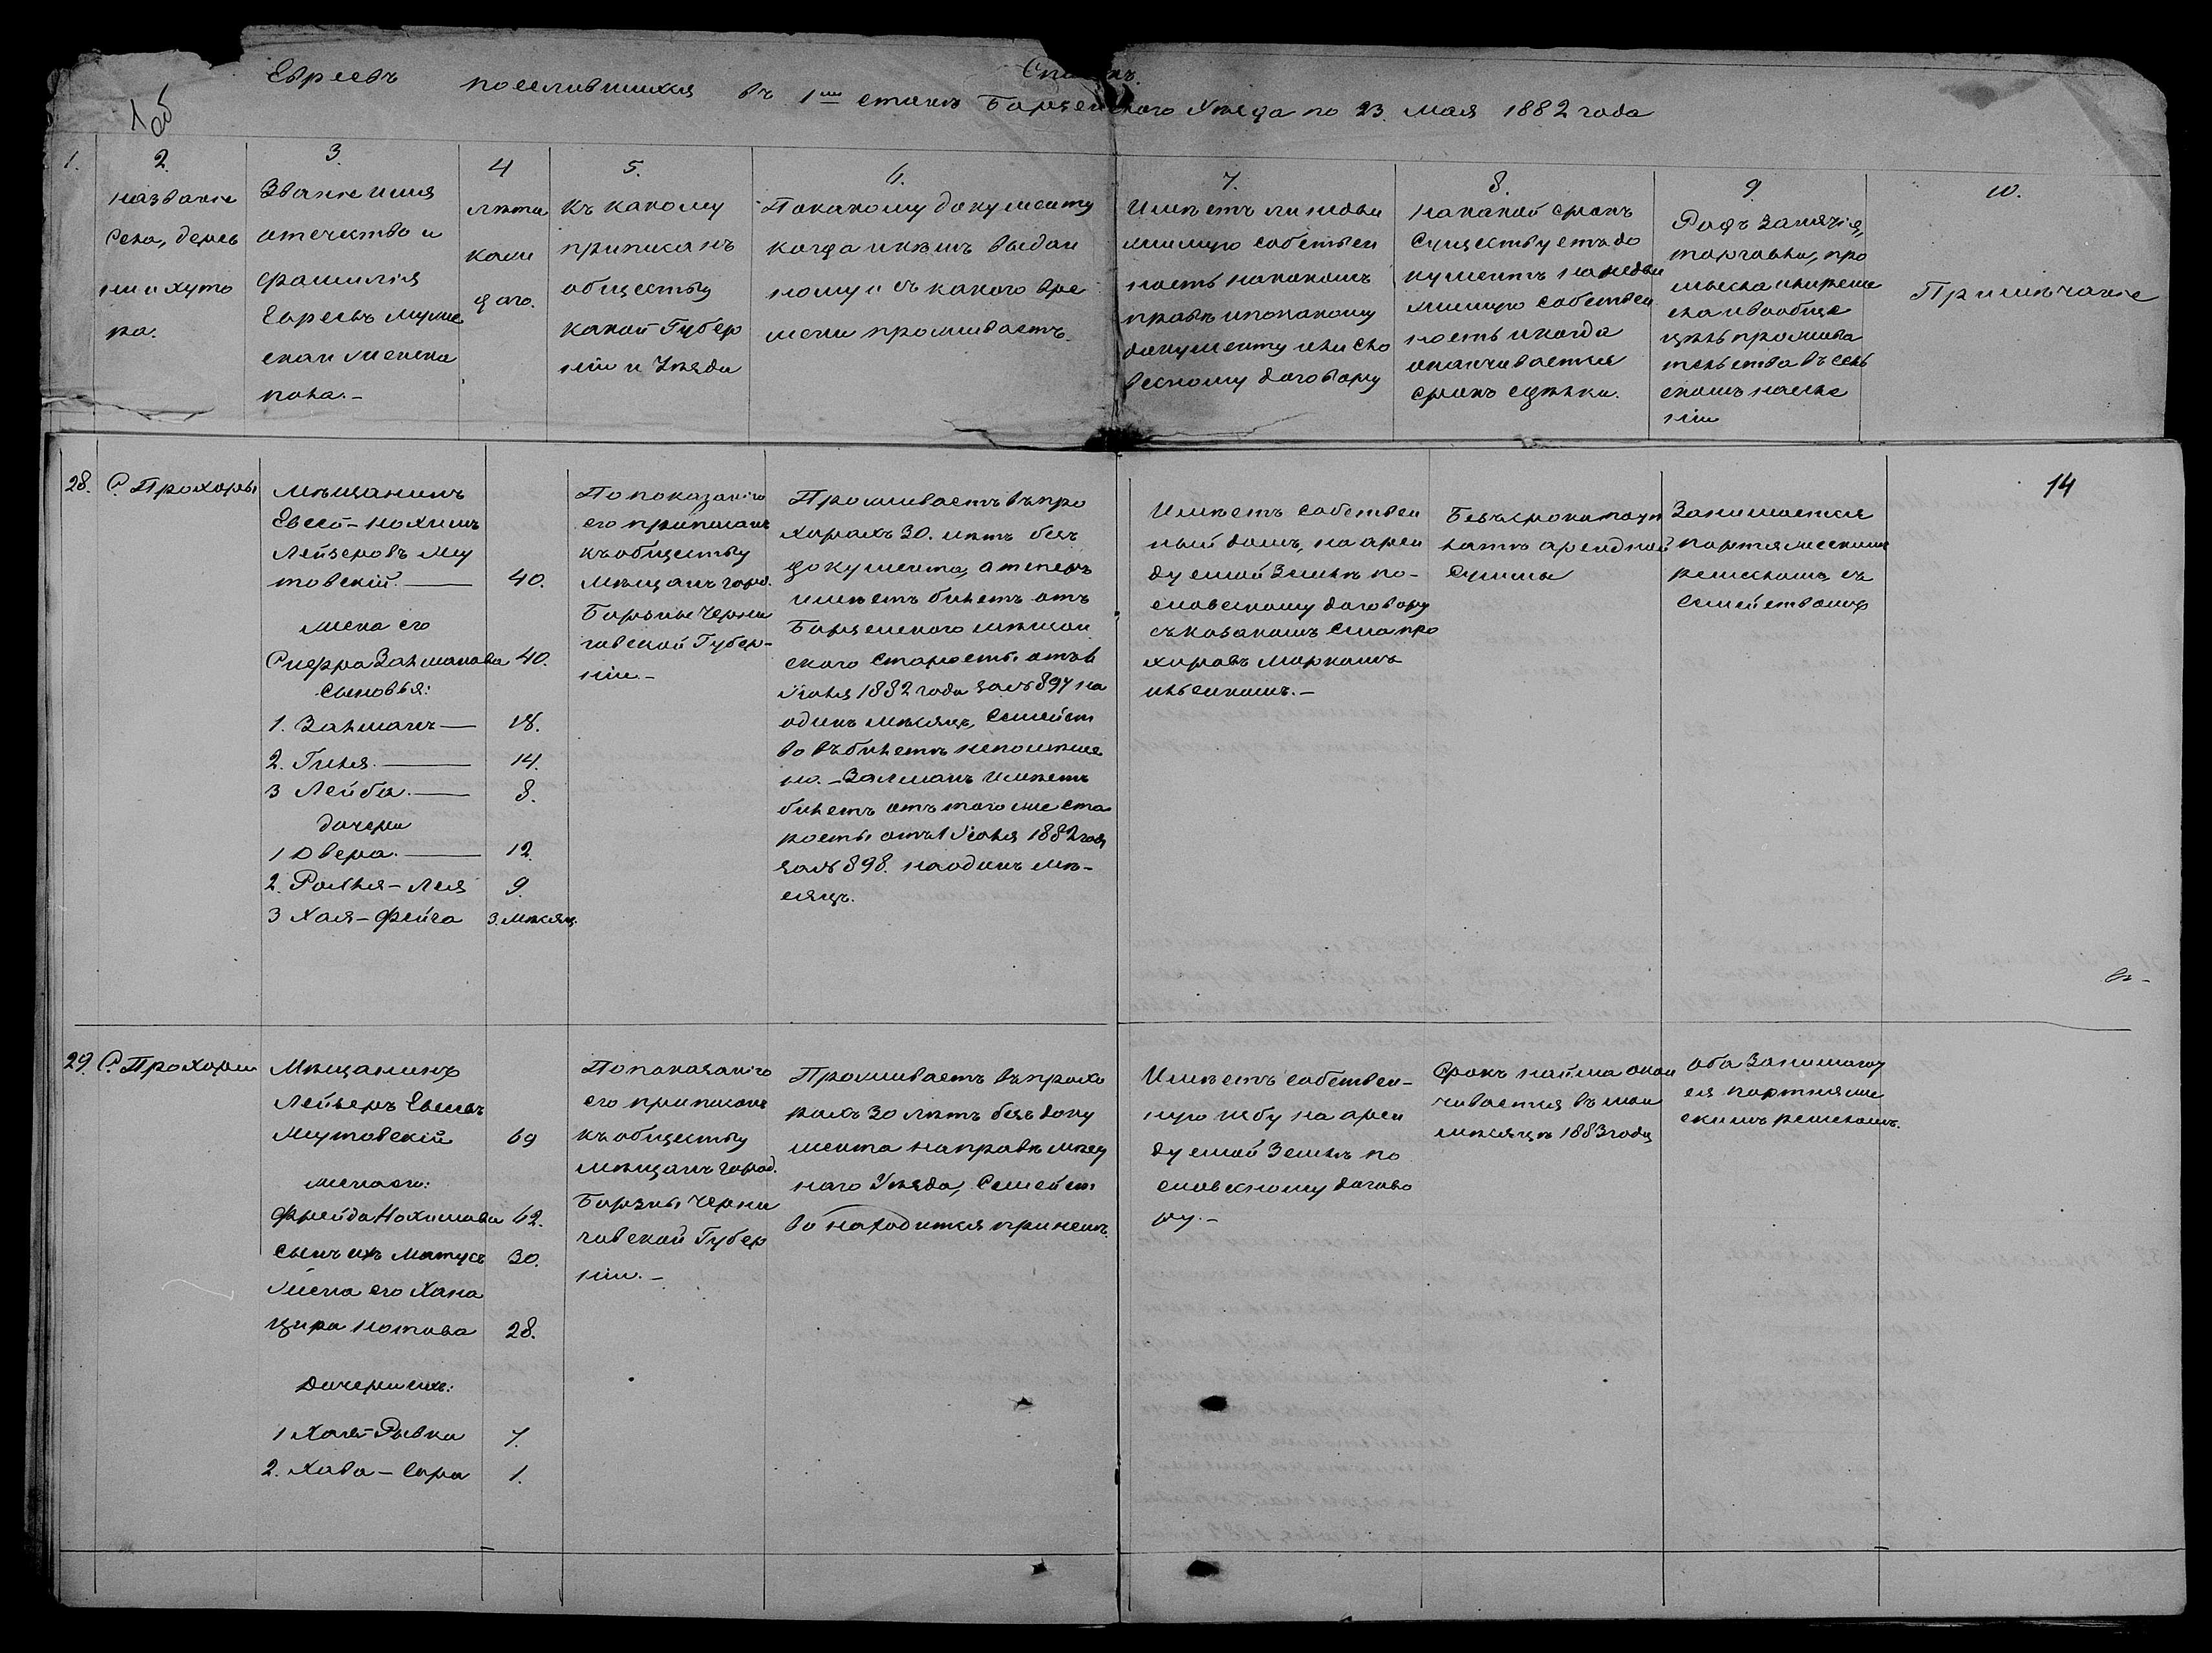 Списокъ
Евреевъ поселившихся въ 1мъ станѣ Борзенскаго Уѣзда по 23. мая 1882 года
1 об
1.
2.
названіе
села, дерев
ни и хуто
ра.
3.
Званіе имя
отчество и
фамилія
Евреевъ муже
ска и женска
пола. –
4
лѣта
каж
даго.
5.
Къ какому
приписанъ
обществу
какой Губер
ніи и Уѣзда
6.
По какому документу
когда и кѣмъ выдан
ному и съ какого вре
мени проживаетъ.
7.
Имѣетъ ли недви
жимую собствен
ность на какомъ
правѣ и по какому
документу или сло
весному договору
8.
На какой срокъ
Существуетъ до
кументъ на недви
жимую собствен
ность и когда
оканчивается
срокъ сдѣлки.
9.
Родъ занятія,
торговли, про
мысла и ремес
ла и вообще
цѣль прожива
тельства въ сель
скомъ населе
ніи
10.
Примѣчаніе
14
28.
С. Прохоры
Мѣщанинъ
Евсей-Нохимъ
Лейзеровъ Му
товскій. —
40.
жена его
Слефра Залманова
40.
Сыновья:
1. Залманъ —
18.
2. Гиля. —
14.
3 Лейба. —
8.
дочери
1 Двера. —
12.
2. Рольля-Лея
9.
3 Хая-Фейга
3. мѣсяц.
По показанію
его приписанъ
къ обществу
мѣщанъ город.
Борзны Черни
говской Губер-
ніи. –
Проживаетъ въ Про
хорахъ 30. лѣтъ безъ
документа, а теперь
имѣетъ билетъ отъ
Борзенского мѣщан
ского старосты отъ 1
Іюня 1882 года за № 897 на
одинъ мѣсяцъ, Семейст
во въ билетѣ непомѣще
но. – Залманъ имѣетъ
билетъ отъ того же ста
росты отъ 1 Іюня 1882 года
за № 898. на одинъ мѣ-
сяцъ.
Имѣетъ собствен
ный домъ, на арен
дуемой землѣ по-
словесному договору
съ козакомъ села Про
хоровъ Маркомъ
Ильенкомъ. –
Безъ срока
арендной
суммы
Занимается
портняжескимъ
ремесломъ съ
семействомъ
29.
С. Прохоры
Мѣщанинъ
Лейзеръ Евсеевъ
Мутовскій
69
жена его:
Фрейда Нохимова
62.
сынъ ихъ Матусъ
30.
Жена его Хана
Цира Нотова
28.
Дочери ихъ:
1 Хая-Ривка
7.
2. Хава-Сара
1.
По показанію
его приписанъ
къ обществу
мѣщанъ город.
Борзны Черни
говской Губер
ніи. –
Проживаетъ въ Прохо
рахъ 30 лѣтъ безъ доку
мента на правѣ мѣст
наго Уѣзда, Семейст
во находится при немъ.
Имѣетъ собствен-
ную избу на арен
дуемой землѣ по
словесному догово
ру. –
Срокъ найма окан
чивается въ маѣ
мѣсяцѣ 1883 года
Оба занимают
ся портняже
скимъ ремесломъ.